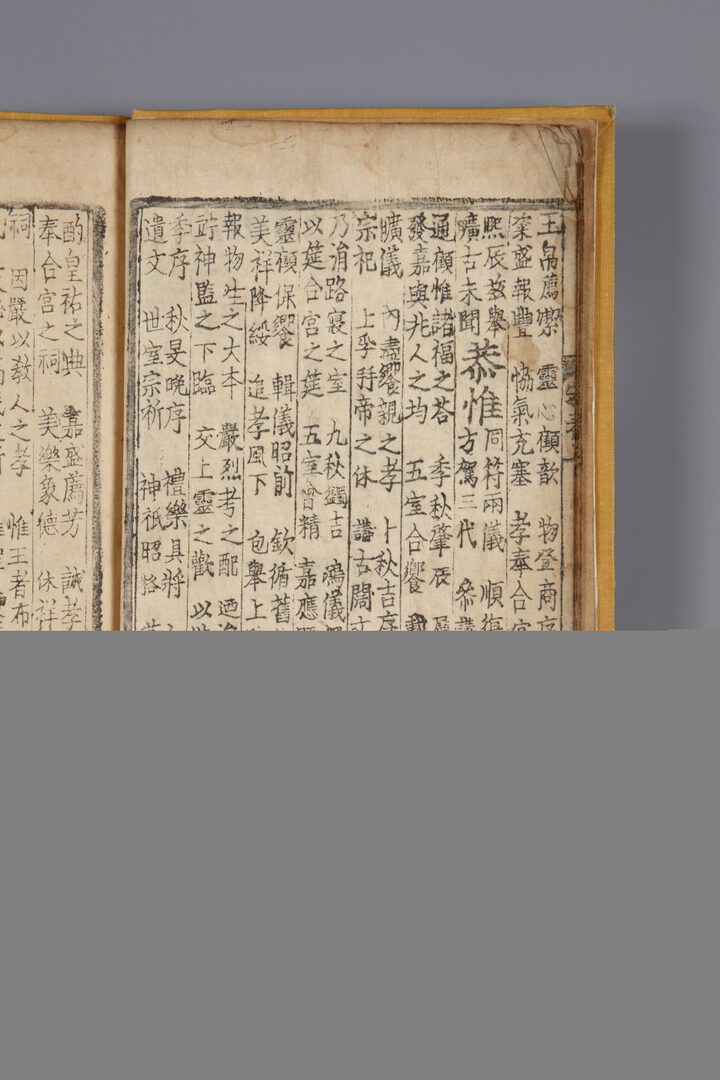 王帛薦潔 靈心顧歆 物登商序
粢盛報豐 協氣充塞 孝奉合宮
熙辰茲舉 恭惟 同符兩儀 順復
曠古未聞 方駕三代 參
通顧惟諸福之荅 季秋肇辰
發嘉與兆人之均 五室合饗
曠儀 內盡饗親之孝 卜秋吉序
宗祀 上孚拜帝之休 講古闊
乃涓路寢之室 九秋蠲吉 鴻儀
以筵合宮之筵 五室曾精 嘉應
靈顧保饗 輯儀昭前 欽循舊
美祥降綏 追孝風下 包舉上
報物生之大本 嚴烈考之配 迺
竚神監之下臨 交上靈之歡 以
季序 秋旻晚序 禮樂具將
遺文 世室宗祈 神祇昭格
酌皇祐之典 嘉盛薦芳 誠孝
奉合宮之祠 美樂象德 休祥
祠 因嚴以教人之孝 惟王者布